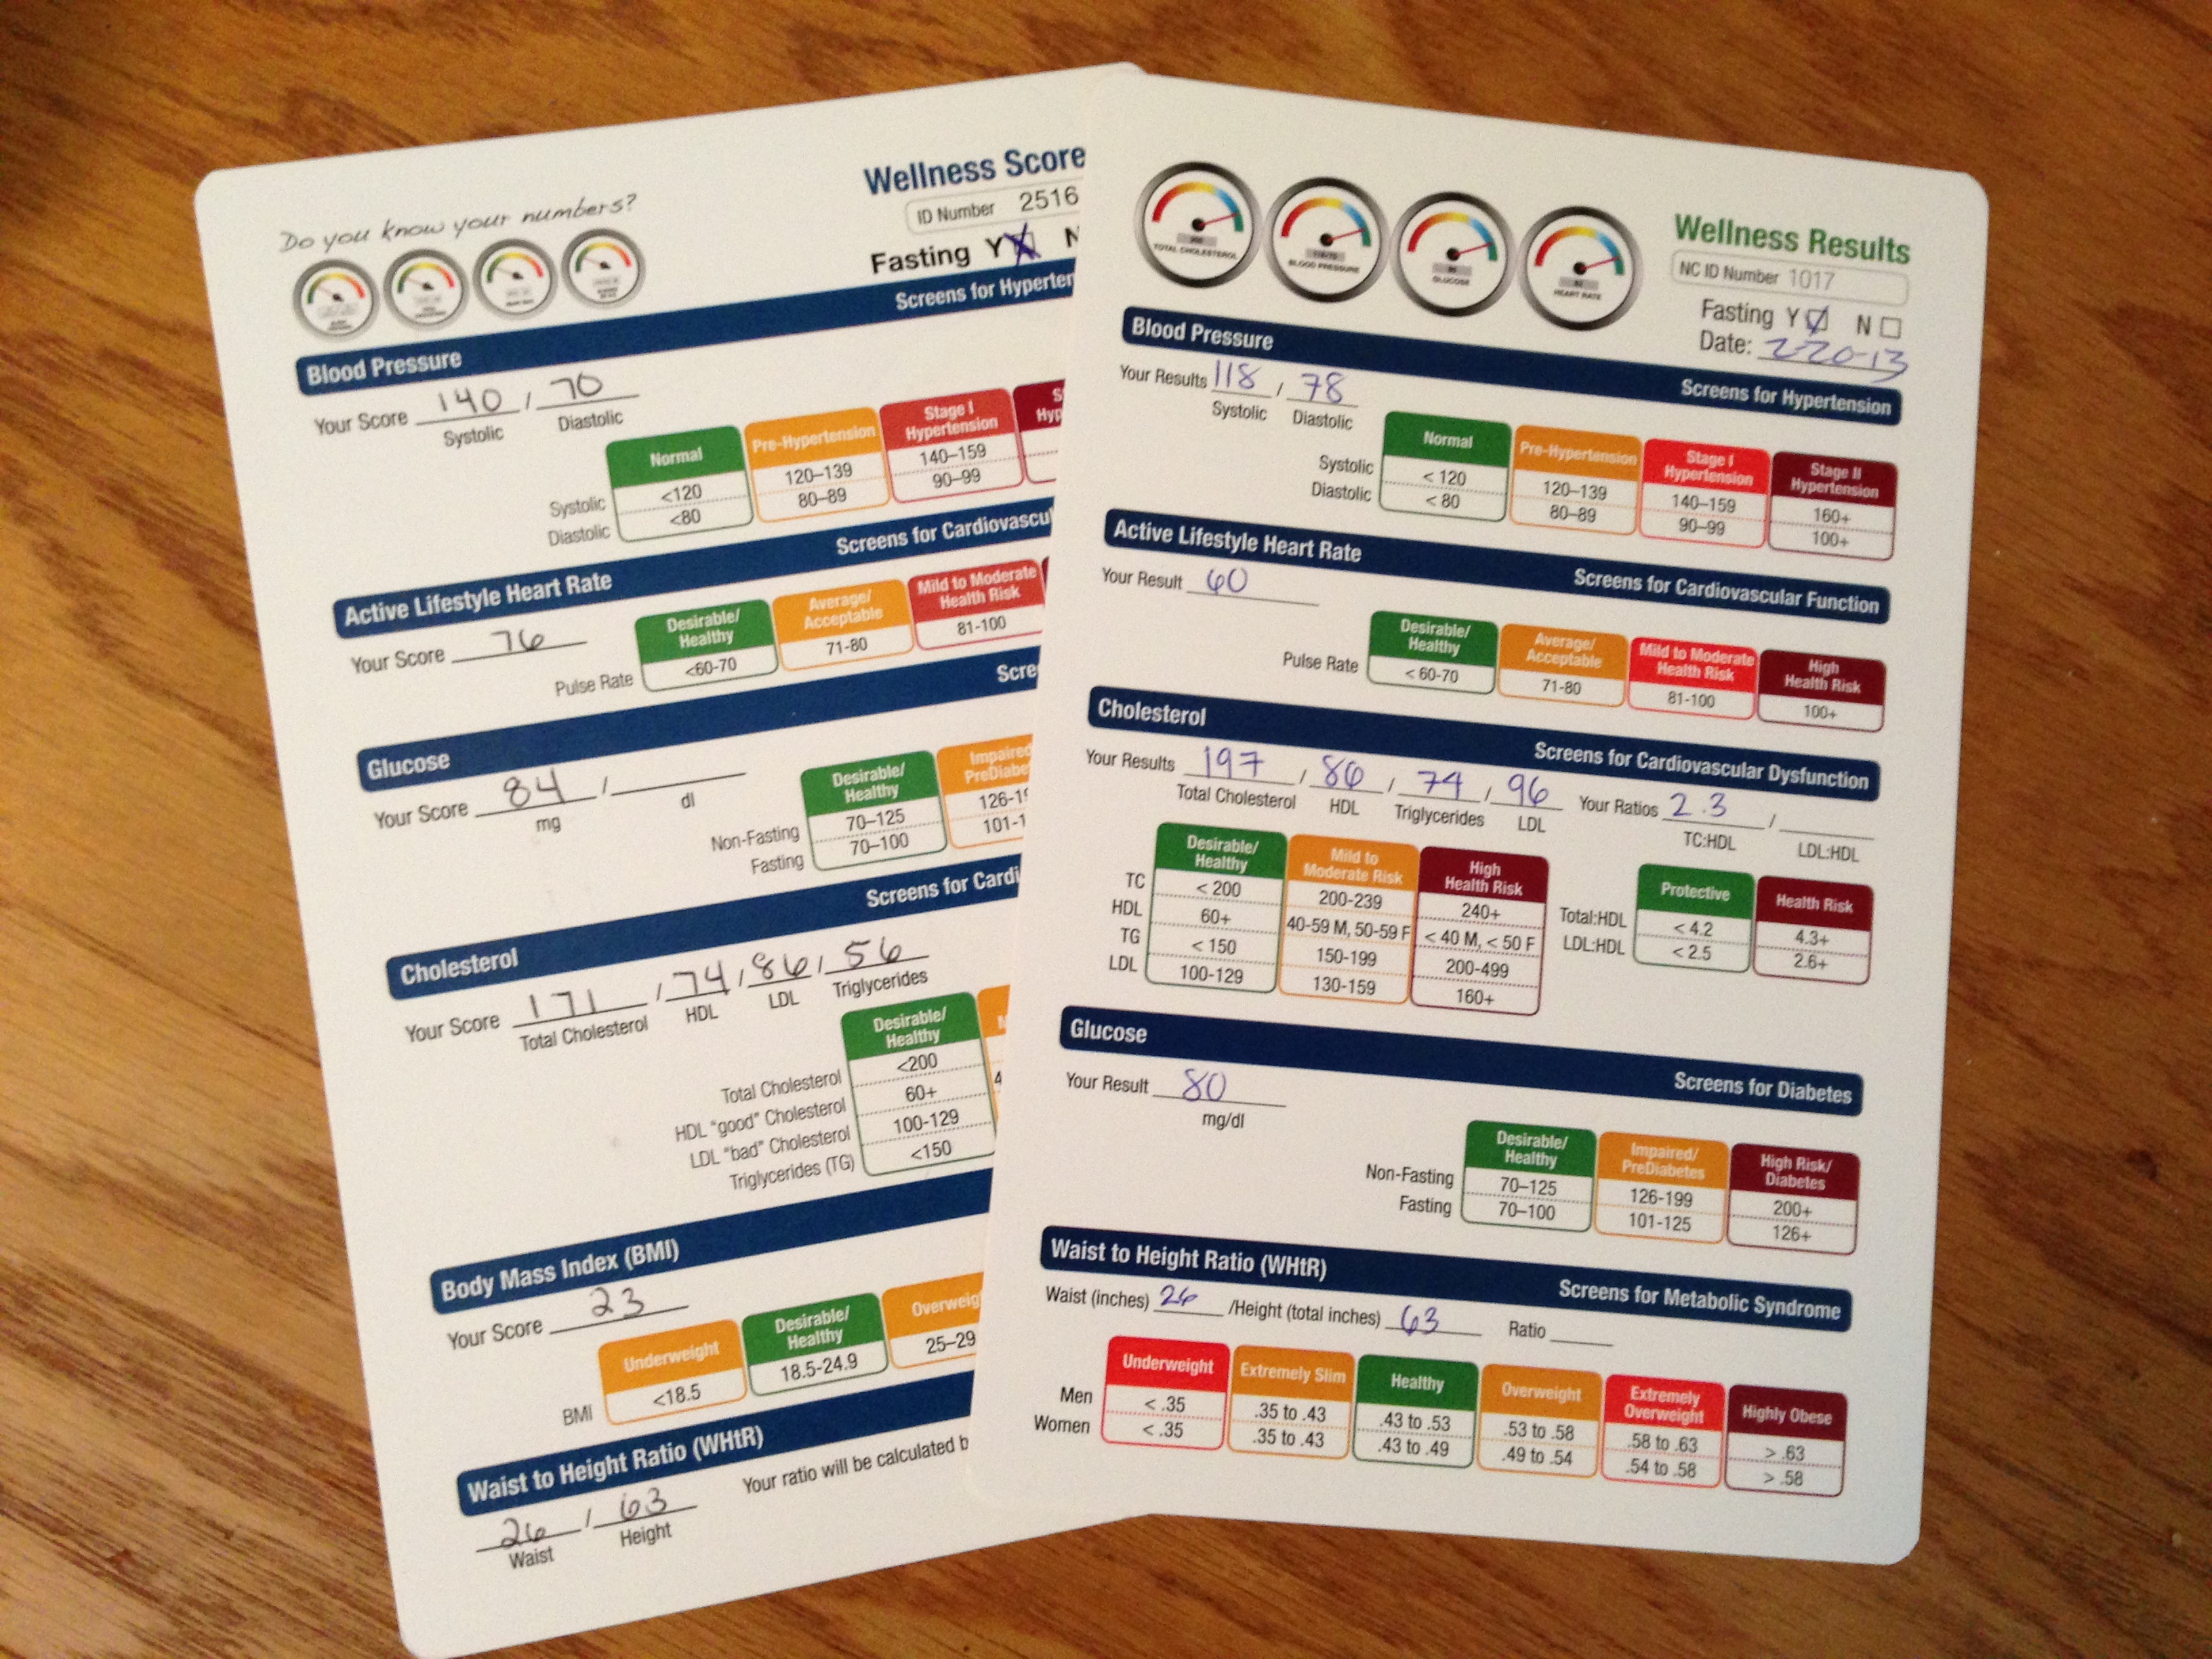 Do you know your numbers?
Wellness Score
ID Number 2516
Fasting Y N
Blood Pressure Screens for Hyperten
Your Score 140 / 70
Systolic Diastolic
Normal Pre-Hypertension Stage I Hypertension S Hyp
Systolic <120 120–139 140–159
Diastolic <80 80–89 90–99
Active Lifestyle Heart Rate Screens for Cardiovascul
Your Score 76
Desirable/ Healthy Average/ Acceptable Mild to Moderate Health Risk
Pulse Rate <60-70 71-80 81-100
Glucose Scre
Your Score 84 /
mg dl
Desirable/ Healthy Impaired PreDiabe
Non-Fasting 70–125 126-19
Fasting 70–100 101-1
Cholesterol Screens for Cardi
Your Score 171 / 74 / 86 / 56
Total Cholesterol HDL LDL Triglycerides
Desirable/ Healthy
Total Cholesterol <200
HDL "good" Cholesterol 60+ 4
LDL "bad" Cholesterol 100-129
Triglycerides (TG) <150
Body Mass Index (BMI)
Your Score 23
Underweight Desirable/ Healthy Overweig
BMI <18.5 18.5-24.9 25–29
Waist to Height Ratio (WHtR)
26 / 63 Your ratio will be calculated b
Waist Height
TOTAL CHOLESTEROL BLOOD PRESSURE GLUCOSE HEART RATE
Wellness Results
NC ID Number 1017
Fasting Y N
Date: 2-20-13
Blood Pressure Screens for Hypertension
Your Results 118 / 78
Systolic Diastolic
Normal Pre-Hypertension Stage I Hypertension Stage II Hypertension
Systolic < 120 120–139 140–159 160+
Diastolic < 80 80–89 90–99 100+
Active Lifestyle Heart Rate Screens for Cardiovascular Function
Your Result 60
Desirable/ Healthy Average/ Acceptable Mild to Moderate Health Risk High Health Risk
Pulse Rate < 60-70 71-80 81-100 100+
Cholesterol Screens for Cardiovascular Dysfunction
Your Results 197 / 86 / 74 / 96 Your Ratios 2.3 /
Total Cholesterol HDL Triglycerides LDL TC:HDL LDL:HDL
Desirable/ Healthy Mild to Moderate Risk High Health Risk Protective Health Risk
TC < 200 200-239 240+ Total:HDL < 4.2 4.3+
HDL 60+ 40-59 M, 50-59 F < 40 M, < 50 F LDL:HDL < 2.5 2.6+
TG < 150 150-199 200-499
LDL 100-129 130-159 160+
Glucose Screens for Diabetes
Your Result 80
mg/dl
Desirable/ Healthy Impaired/ PreDiabetes High Risk/ Diabetes
Non-Fasting 70–125 126-199 200+
Fasting 70–100 101-125 126+
Waist to Height Ratio (WHtR) Screens for Metabolic Syndrome
Waist (inches) 26 /Height (total inches) 63 Ratio
Underweight Extremely Slim Healthy Overweight Extremely Overweight Highly Obese
Men < .35 .35 to .43 .43 to .53 .53 to .58 .58 to .63 > .63
Women < .35 .35 to .43 .43 to .49 .49 to .54 .54 to .58 > .58